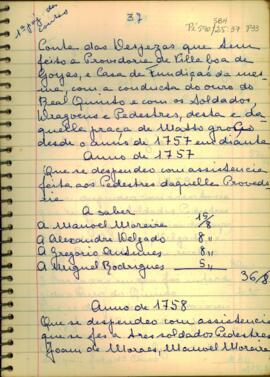 37
1ª pag. do
SBH
Pi 570/25.37 P33
Conta das Despezas que tem
feito a Provedoria de Villa boa de
Goyaz, e Casa de Fundição da mes-
ma, com a conducta do ouro do
Real Quinto e com os Soldados,
Dragoens e Pedestres, desta e da-
quella praça de Matto groço
desde o anno de 1757 em diante
Anno de 1757
Que se despendeo com assistencia
feita aos Pedestres daquella Provedo-
ria
A saber
A Manoel Moreira 15/8
A Alexandre Delgado 8 "
A Gregorio Antunes 8 "
A Miguel Rodrigues 5 "
36/8
Anno de 1758
Que se despendeo com assistencia
que se fes a tres soldados Pedestres
Joam de Moraes, Manoel Moreira